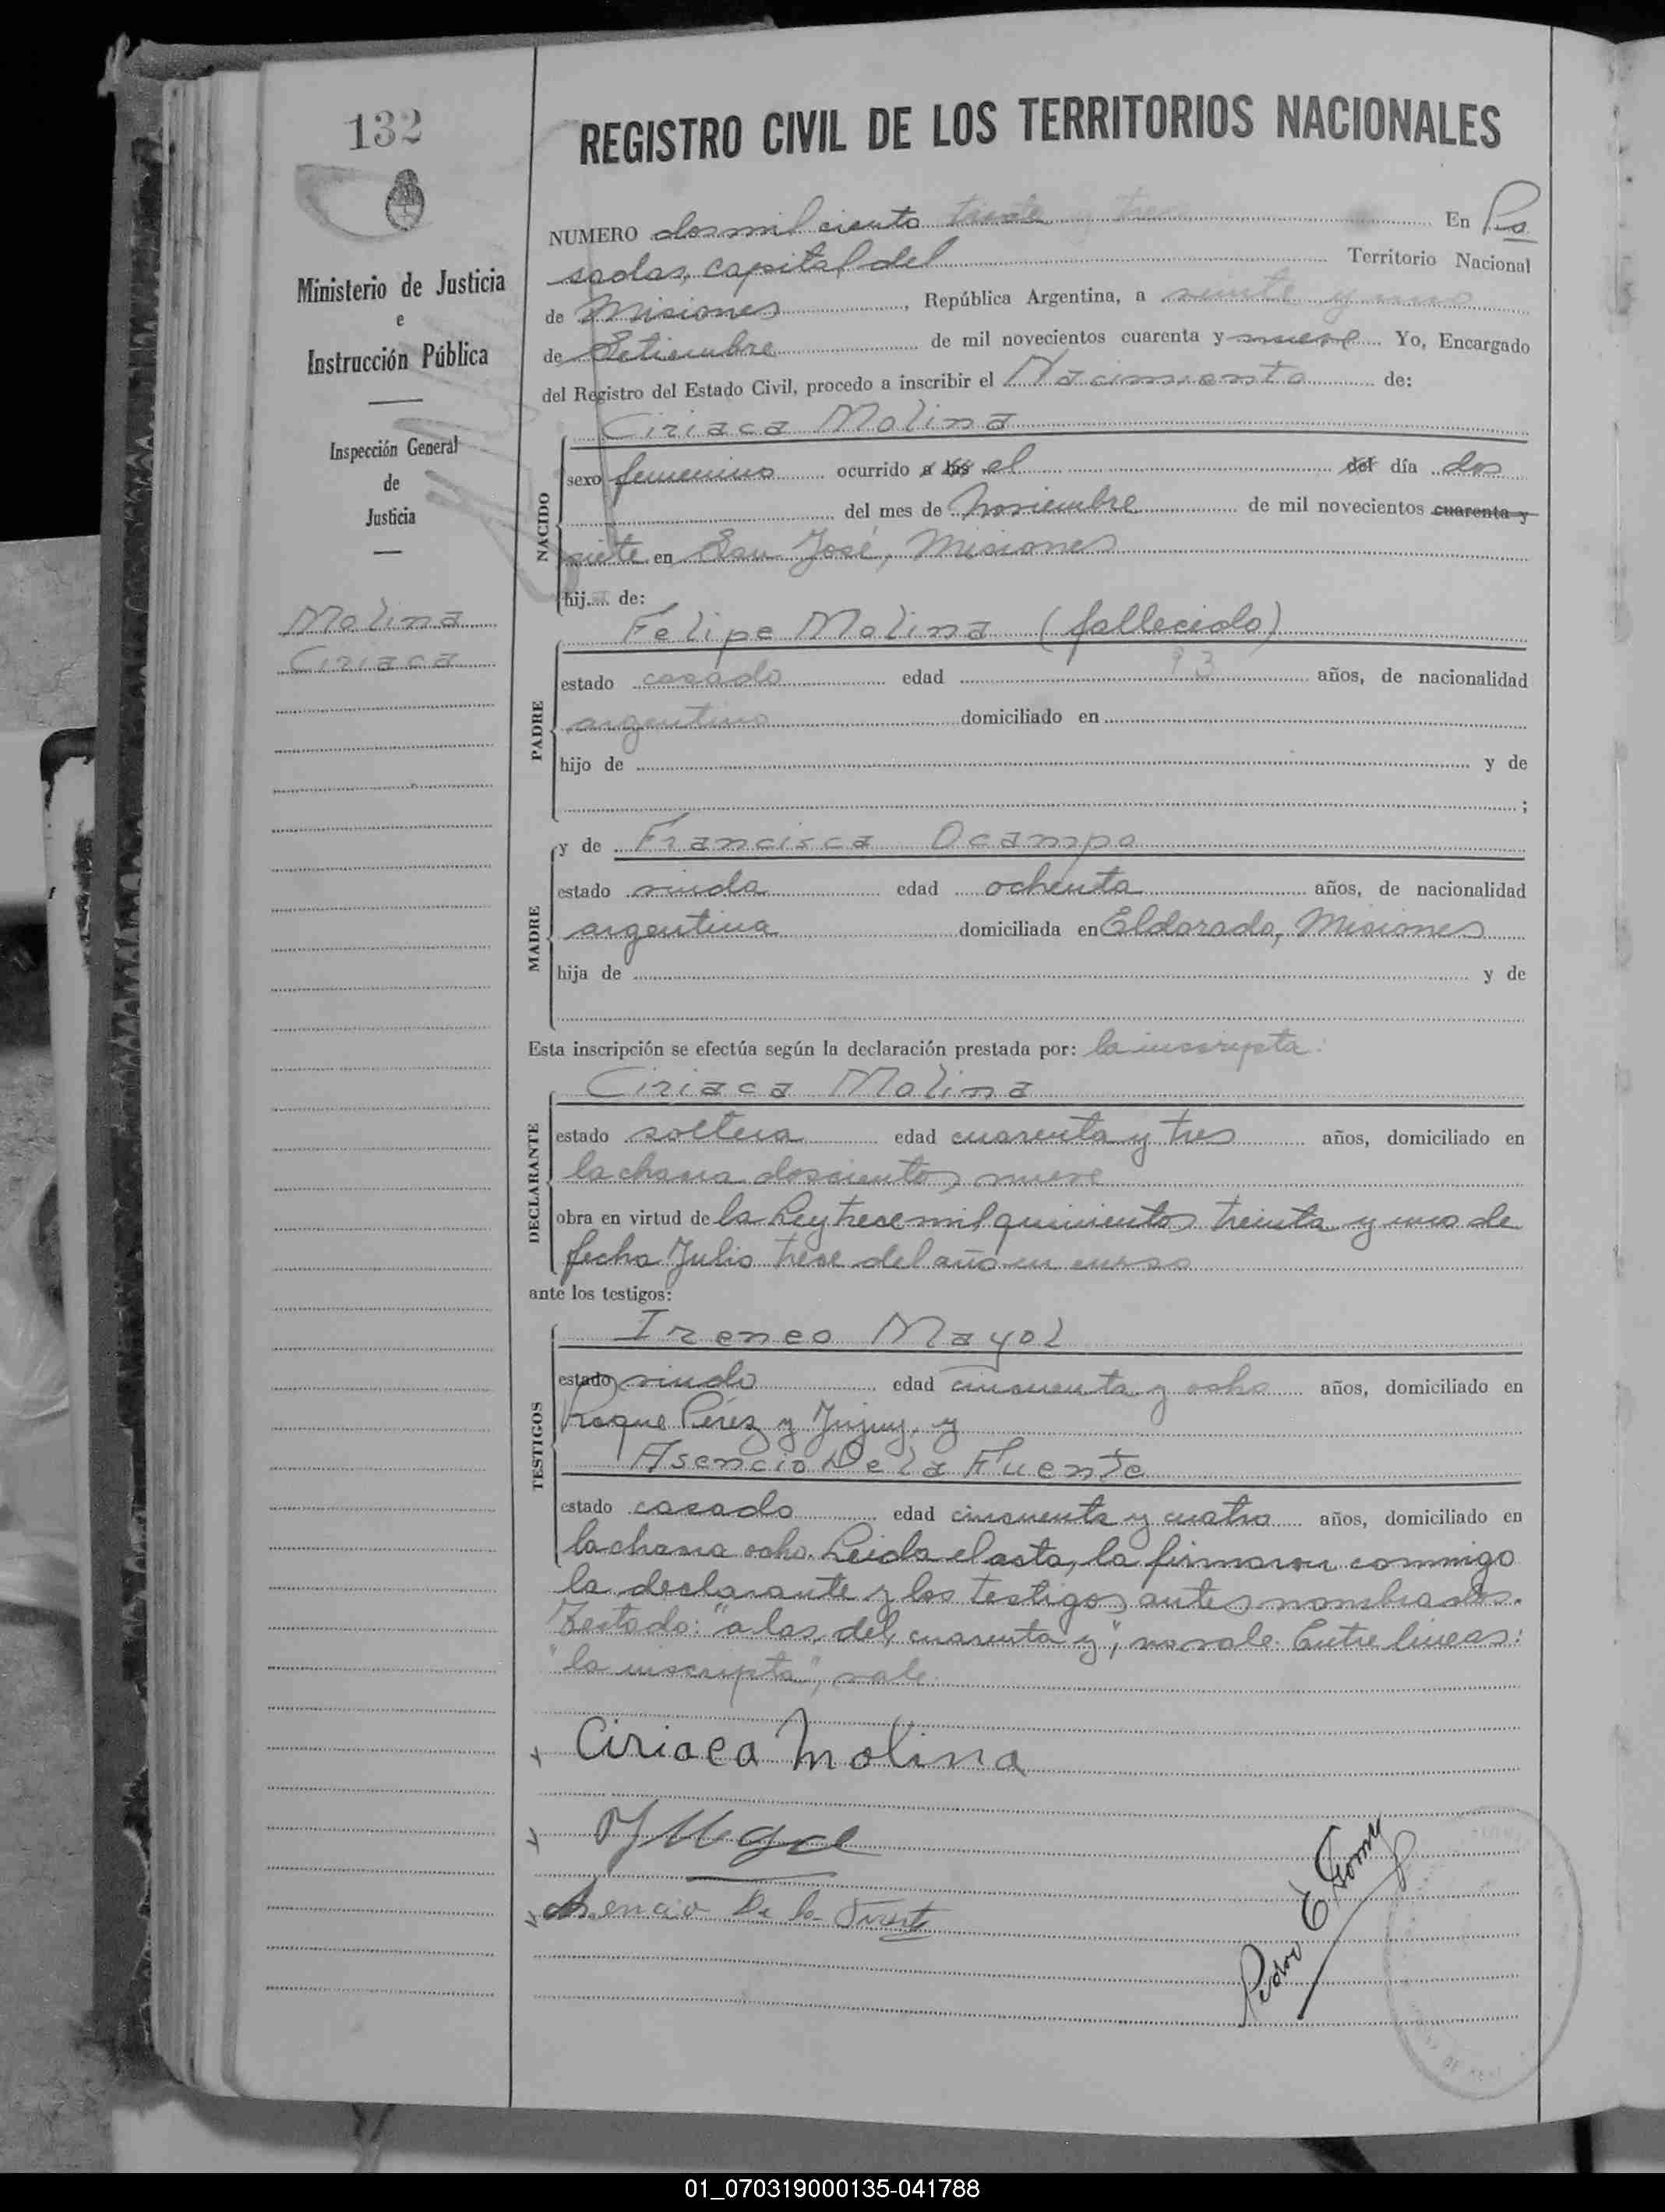 132
Ministerio de Justicia
e
Instrucción Pública
Inspección General
de
Justicia
Molina
Ciriaca
REGISTRO CIVIL DE LOS TERRITORIOS NACIONALES
NUMERO dos mil ciento treinta tres En Po
sadas, capital del Territorio Nacional
de Misiones, República Argentina, a veinte y uno
de Setiembre de mil novecientos cuarenta y nueve Yo, Encargado
del Registro del Estado Civil, procedo a inscribir el Nacimiento de:
NACIDO
Ciriaca Molina
sexo femenino ocurrido a las el del día dos
del mes de Noviembre de mil novecientos cuarenta y
siete en San José, Misiones
hija de:
PADRE
Felipe Molina (fallecido)
estado casado edad 93 años, de nacionalidad
argentino domiciliado en
hijo de y de
;
MADRE
y de Francisca Ocampo
estado viuda edad ochenta años, de nacionalidad
argentina domiciliada en Eldorado, Misiones
hija de y de
Esta inscripción se efectúa según la declaración prestada por: la inscripta.
DECLARANTE
Ciriaca Molina
estado soltera edad cuarenta y tres años, domiciliado en
la chacra doscientos nueve
obra en virtud de la Ley trece mil quinientos treinta y uno de
fecha Julio trece del año en curso
ante los testigos:
TESTIGOS
Ireneo Mayol
estado viudo edad cincuenta y ocho años, domiciliado en
Roque Pérez y Jujuy, y
Asencio De la Fuente
estado casado edad cincuenta y cuatro años, domiciliado en
la chacra ocho. Leida el acta, la firmaron conmigo
la declarante y los testigos antes nombrados.
Testado: "a las, del, cuarenta y", no vale. Entre lineas:
"la inscripta", vale.
Ciriaca Molina
Asencio De la Fuente
Pedro E Gomez
01_070319000135-041788